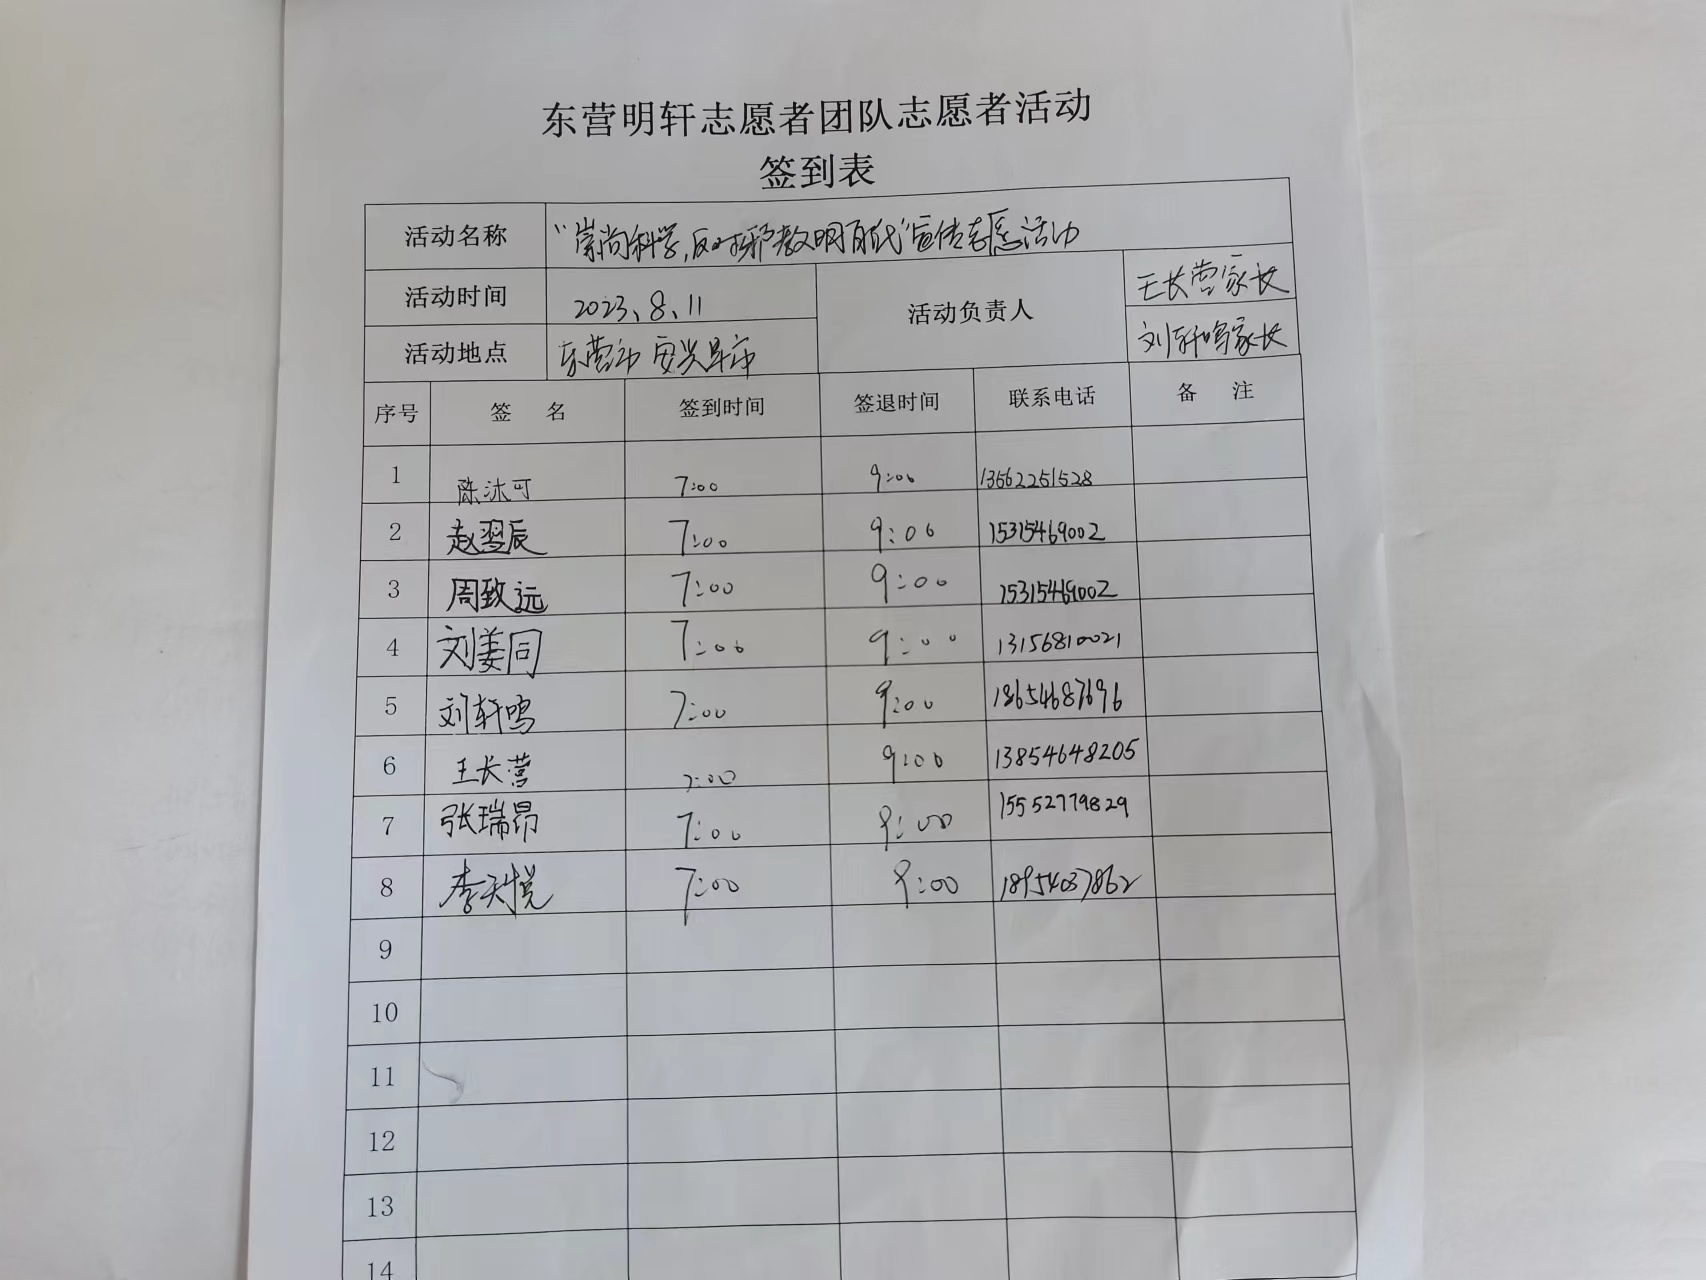 东营明轩志愿者团队志愿者活动
签到表
活动名称 “崇尚科学,反对邪教,明百代”宣传志愿活动
活动时间 2023、8、11 活动负责人 王长营家长
活动地点 东营市 安兴早市 刘轩鸣家长
序号 签 名 签到时间 签退时间 联系电话 备 注
1 陈沐可 7:00 9:00 13562251528
2 赵翌辰 7:00 9:00 15315469002
3 周致远 7:00 9:00 15315469002
4 刘姜同 7:00 9:00 13156810021
5 刘轩鸣 7:00 9:00 18654687696
6 王长营 7:00 9:00 13854648205
7 张瑞昂 7:00 9:00 15552779829
8 李天悦 7:00 9:00 18954037862
9
10
11
12
13
14